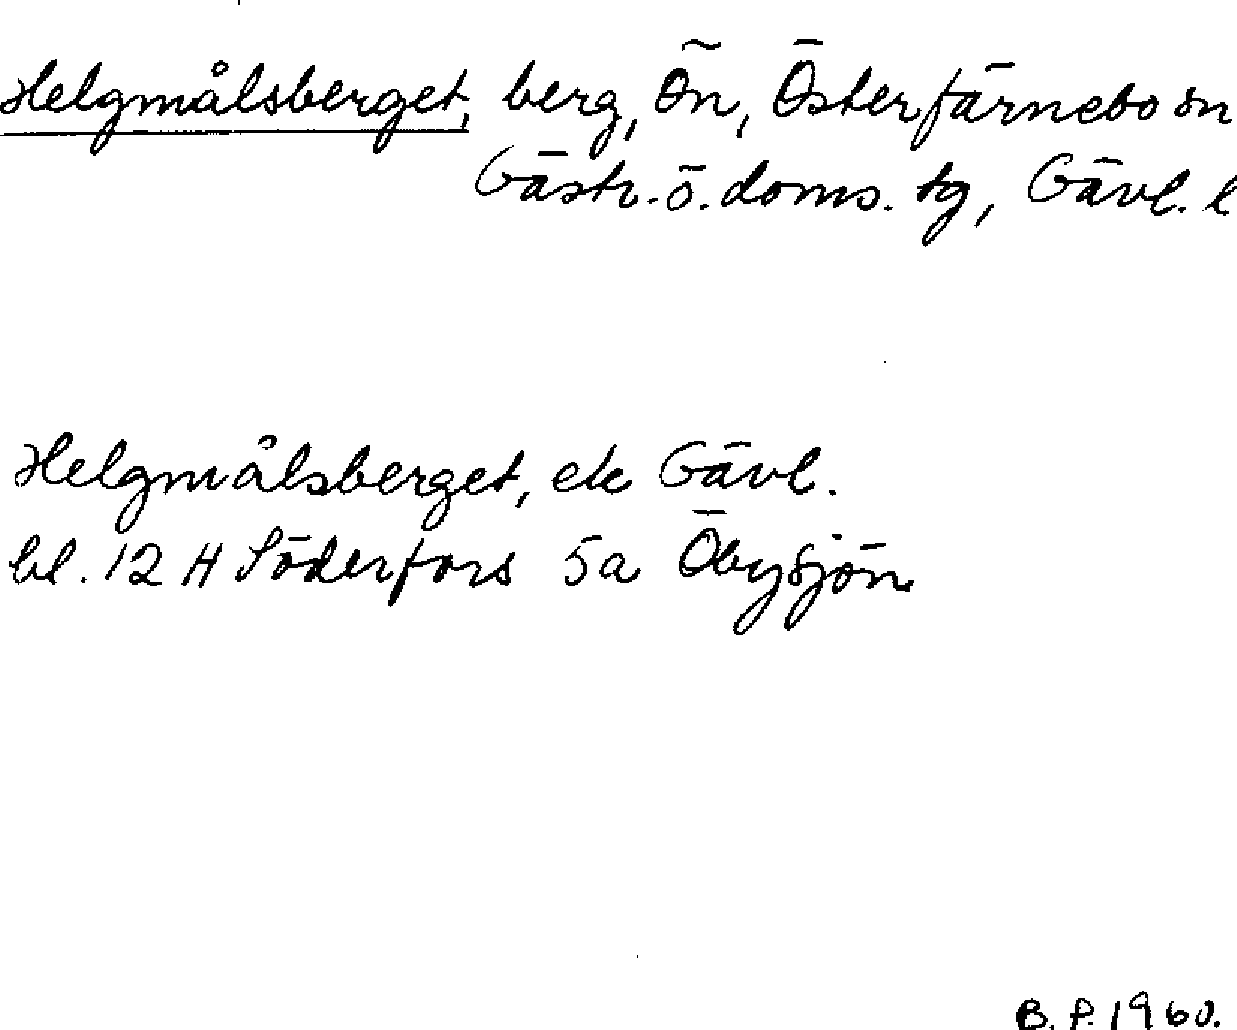 Helgmålsberget, berg, Ön, Österfärnebo sn
Gästr. ö. doms. tg, Gävl. l
Helgmålsberget, ek Gävl.
bl. 12 H Söderfors 5a Öbysjön
B. P. 1960.